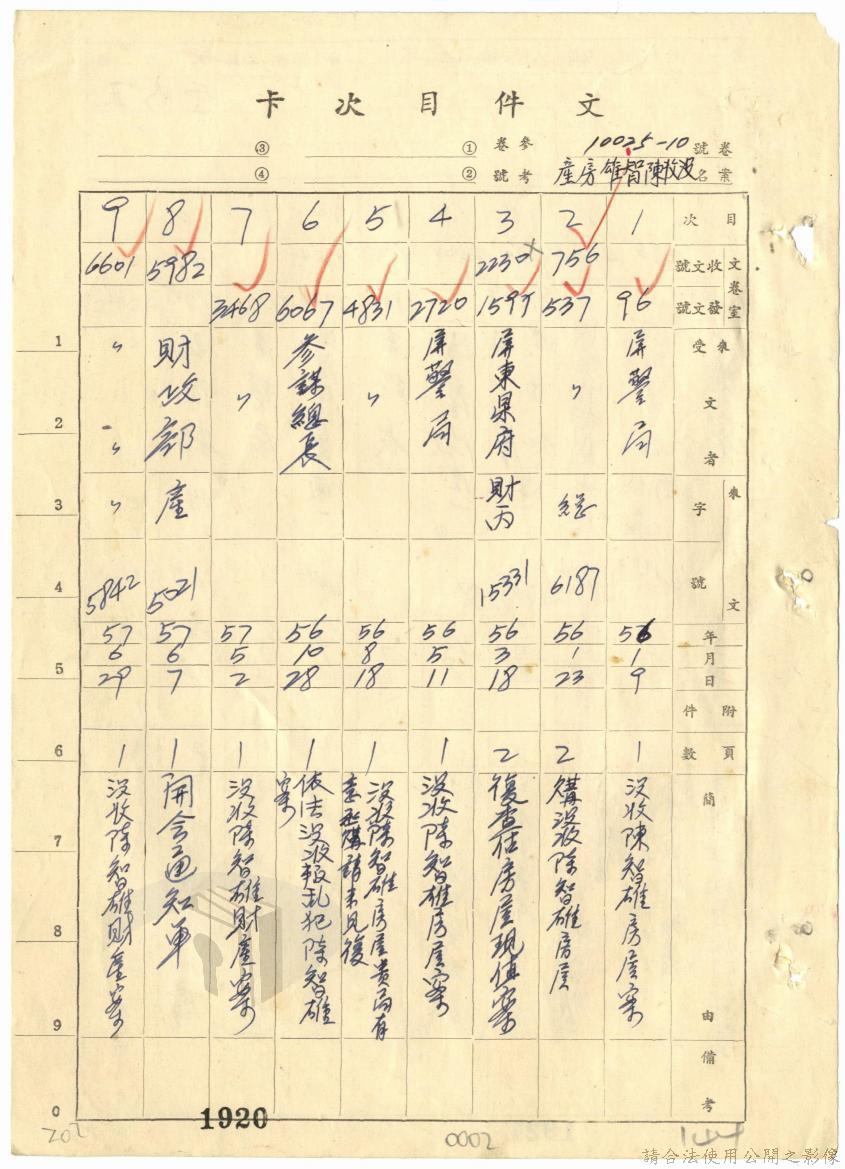 文件目次卡
卷號 10025-10
案名 沒收陳智雄房產
參考卷號 ① ② ③ ④
目次 1 2 3 4 5 6 7 8 9
文卷室 收文號 756 2230 5982 6601
發文號 96 537 1595 2720 4831 6067 3468
來文 受文者 屏警局 〃 屏東県府 屏警局 〃 參謀總長 〃 財政部 〃 〃
來文 字 總 財丙 產 〃
號 6187 15331 5021 5842
年 56 56 56 56 56 56 57 57 57
月 1 1 3 5 8 10 5 6 6
日 9 23 18 11 18 28 2 7 29
附件
頁數 1 2 2 1 1 1 1 1 1
簡由
沒收陳智雄房屋案
購沒收陳智雄房屋
復查估房屋現值案
沒收陳智雄房屋案
沒收陳智雄房屋貴局有意承購請未見復
依法沒收叛乱犯陳智雄案
沒收陳智雄財產案
開会通知單
沒收陳智雄財產案
備考
1
2
3
4
5
6
7
8
9
0
202
1920
0002
144
請合法使用公開之影像